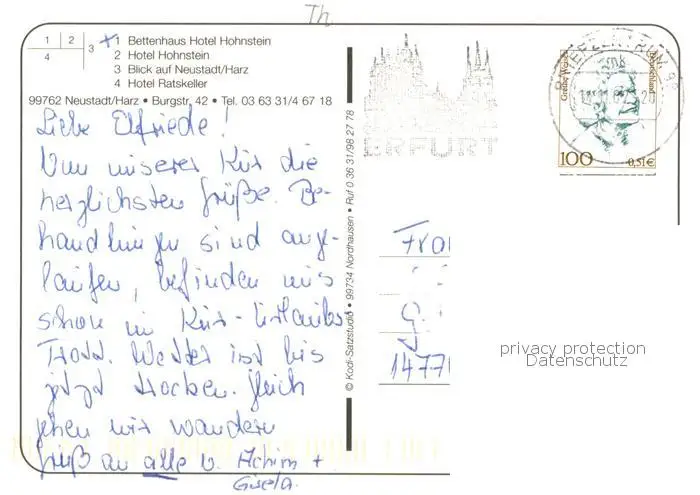 Th
1 2 3 4
1 Bettenhaus Hotel Hohnstein
2 Hotel Hohnstein
3 Blick auf Neustadt/Harz
4 Hotel Ratskeller
99762 Neustadt/Harz • Burgstr. 42 • Tel. 03 63 31/4 67 18
Liebe Elfriede!
Von unserer Kur die
herzlichsten Grüße. Be-
handlungen sind ange-
laufen, befinden uns
schon im Kur-Urlaubs
Trott. Wetter ist bis
jetzt trocken. Gleich
gehen wir wandern
Gruß an alle v. Achim +
Gisela.
© Kodi-Satzstudio • 99734 Nordhausen • Ruf 0 36 31/98 27 78
ERFURT
BRIEFZENTRUM 99
Deutschland
100
0,51€
Frau
1477
privacy protection
Datenschutz